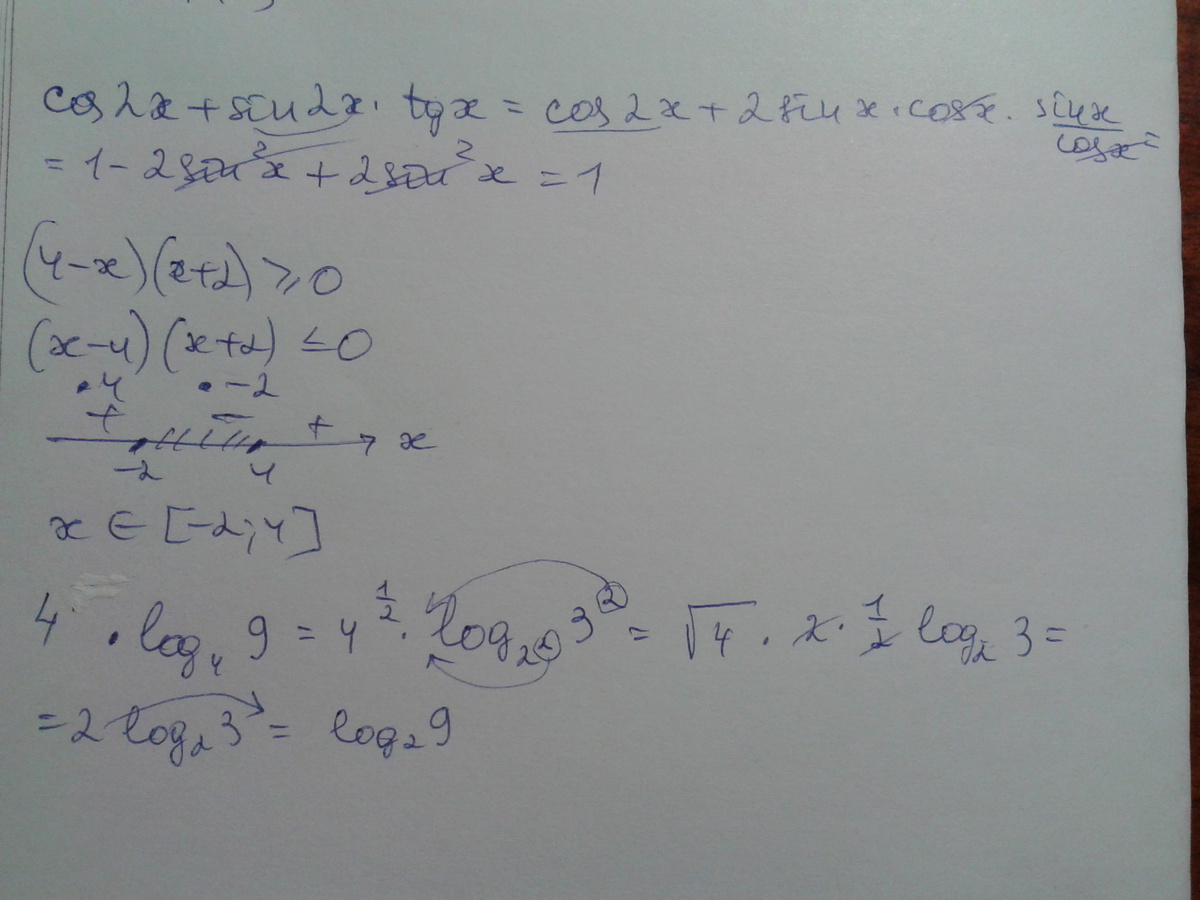 cos2x + sin2x · tgx = cos2x + 2sinx · cosx · sinx/cosx =
= 1 - 2sin²x + 2sin²x = 1
(4-x)(x+2) ≥ 0
(x-4)(x+2) ≤ 0
·4 ·-2
+ - + x
-2 4
x ∈ [-2; 4]
4 · log₄ 9 = 4^(1/2) · log_(2^2) 3^2 = √4 · 2 · 1/2 log₂ 3 =
= 2 log₂ 3 = log₂ 9